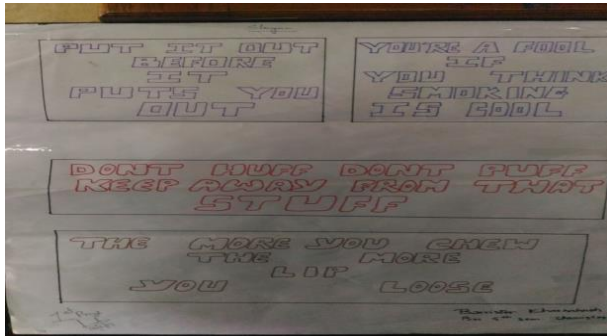 Slogan
PUT IT OUT
BEFORE
IT
PUTS YOU
OUT
YOU'RE A FOOL
IF
YOU THINK
SMOKING
IS COOL
DONT HUFF DONT PUFF
KEEP AWAY FROM THAT
STUFF
THE MORE YOU CHEW
THE MORE
LIP
YOU LOOSE